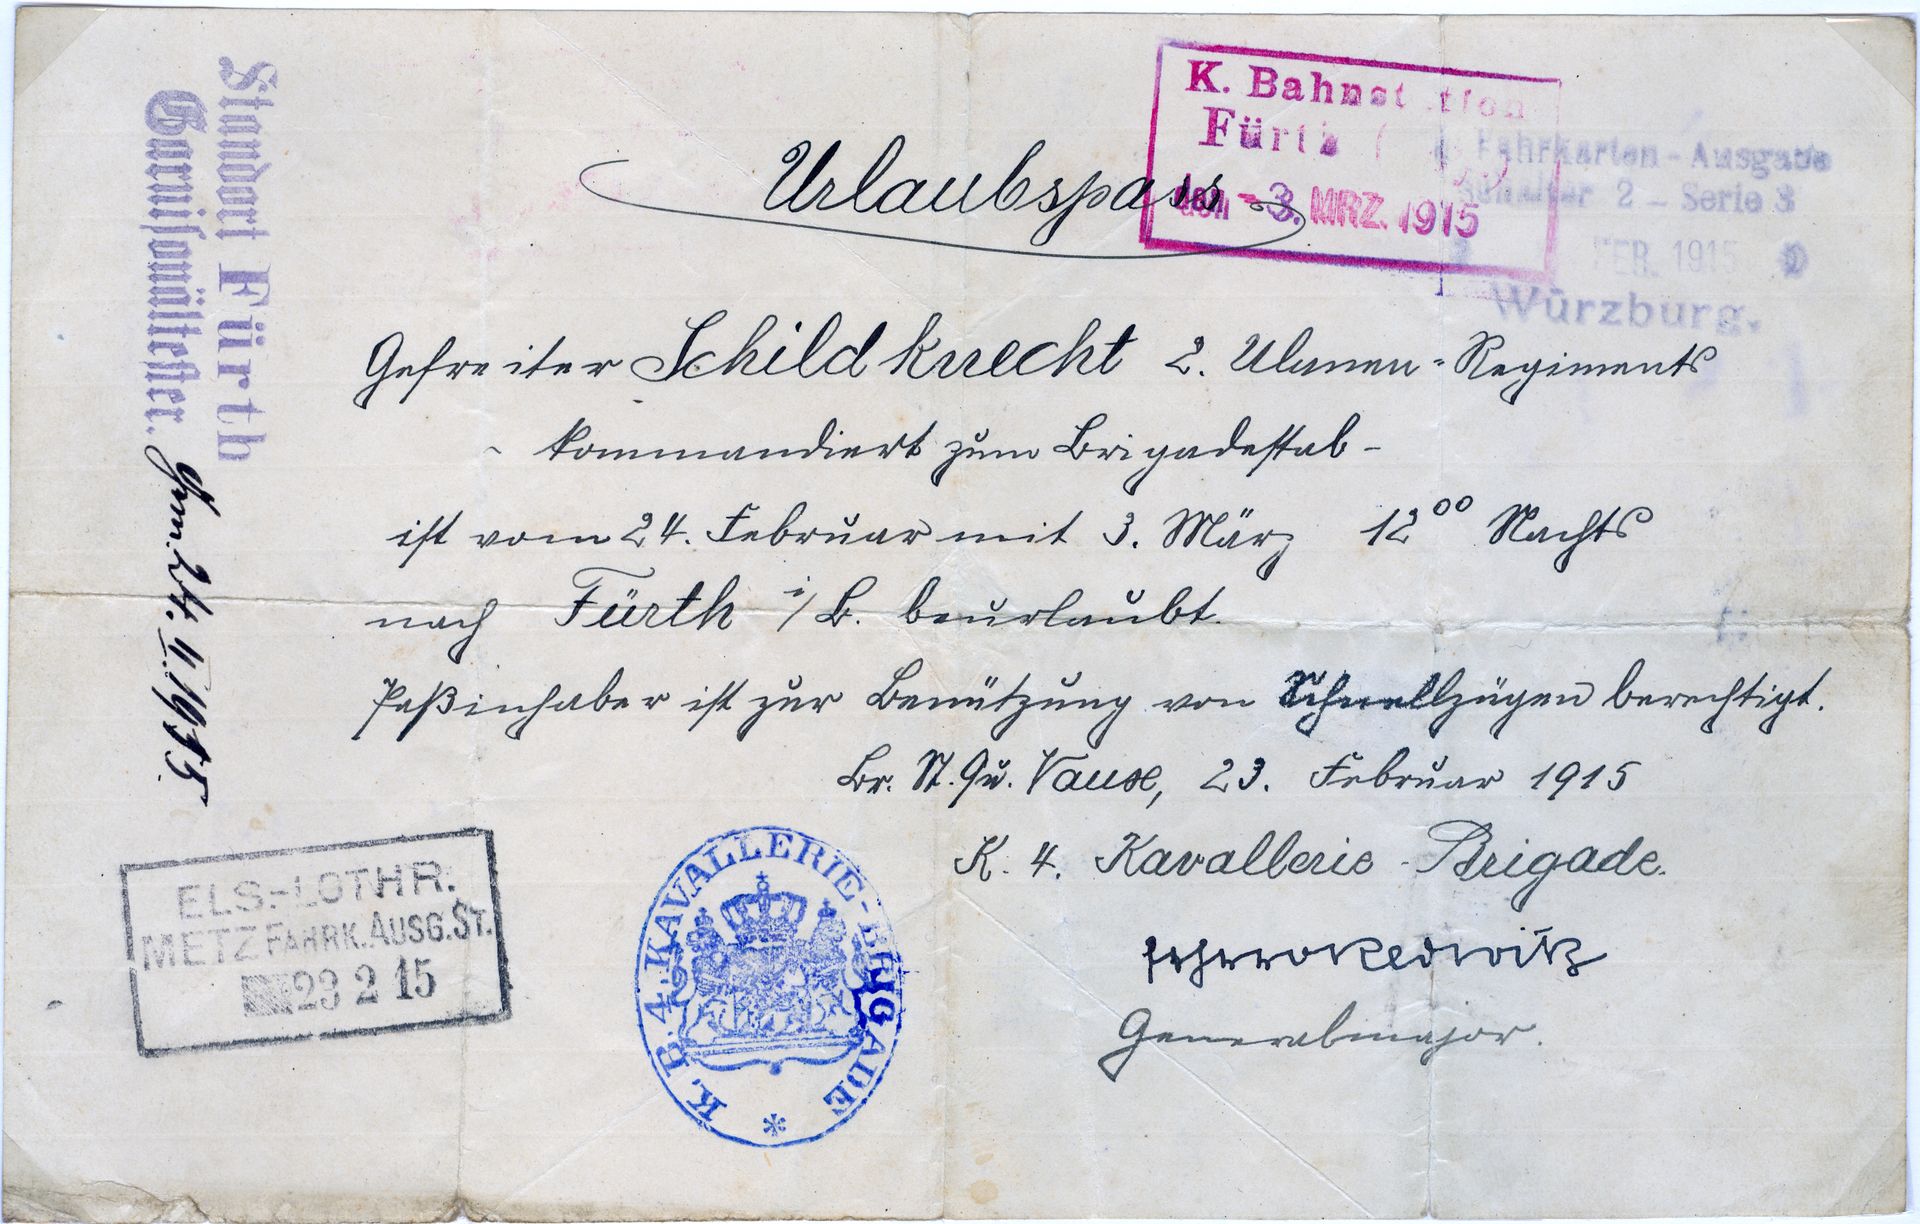 Urlaubspass
K. Bahnstation
Fürth
den - 3. MRZ. 1915
Fahrkarten - Ausgabe
Schalter 2 - Serie 3
FEB. 1915
Würzburg.
Standort Fürth
Garnisonältester.
24. II. 1915
Gefreiter Schildknecht 2. Ulanen-Regiments
- kommandiert zum Brigadestab -
ist vom 24. Februar mit 3. März 12⁰⁰ Nachts
nach Fürth i/B. beurlaubt.
Paßinhaber ist zur Benützung von Schnellzügen berechtigt.
Br. St. Qu. Vaux, 23. Februar 1915
K. 4. Kavallerie-Brigade.
Generalmajor.
ELS.-LOTHR.
METZ FAHRK. AUSG. ST.
23 2 15
K. B. 4. KAVALLERIE-BRIGADE